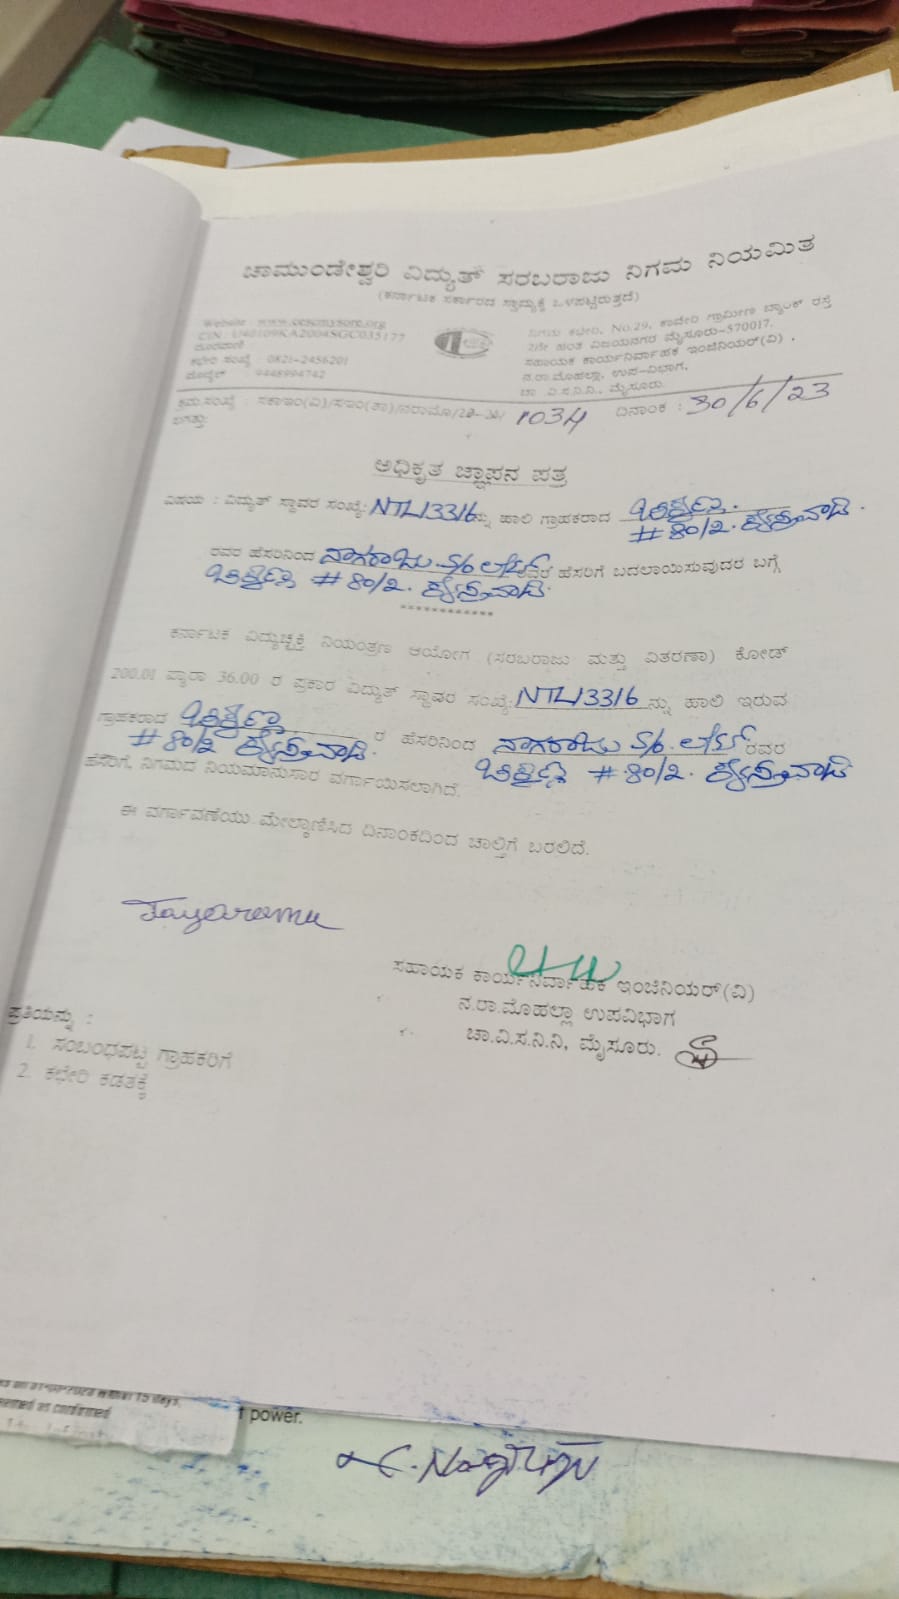 ಚಾಮುಂಡೇಶ್ವರಿ ವಿದ್ಯುತ್ ಸರಬರಾಜು ನಿಗಮ ನಿಯಮಿತ
(ಕರ್ನಾಟಕ ಸರ್ಕಾರದ ಸ್ವಾಮ್ಯಕ್ಕೆ ಒಳಪಟ್ಟಿರುತ್ತದೆ)
Website : www.cescmysore.org
CIN : U40109KA2004SGC035177
ದೂರವಾಣಿ
ಕಛೇರಿ ಸಂಖ್ಯೆ : 0821-2456201
ಮೊಬೈಲ್ 9448994742
ನಿಗಮ ಕಛೇರಿ, No.29, ಕಾವೇರಿ ಗ್ರಾಮೀಣ ಬ್ಯಾಂಕ್ ರಸ್ತೆ
2ನೇ ಹಂತ ವಿಜಯನಗರ ಮೈಸೂರು-570017.
ಸಹಾಯಕ ಕಾರ್ಯನಿರ್ವಾಹಕ ಇಂಜಿನಿಯರ್(ವಿ) ,
ನ.ರಾ.ಮೊಹಲ್ಲಾ, ಉಪ-ವಿಭಾಗ,
ಚಾ .ವಿ.ಸ.ನಿ.ನಿ., ಮೈಸೂರು.
ಕ್ರಮ.ಸಂಖ್ಯೆ : ಸಕಾಇಂ(ವಿ)/ಸಇಂ(ತಾ)/ನರಾಮೊ/ 1034 ದಿನಾಂಕ : 30/6/23
ಲಗತ್ತು:
ಅಧಿಕೃತ ಜ್ಞಾಪನ ಪತ್ರ
ವಿಷಯ : ವಿದ್ಯುತ್ ಸ್ಥಾವರ ಸಂಖ್ಯೆ: NTL13316 ನ್ನು ಹಾಲಿ ಗ್ರಾಹಕರಾದ
#80/2.
ರವರ ಹೆಸರಿನಿಂದ ನಾಗರಾಜು S/o ಲೇಟ್ ರವರ ಹೆಸರಿಗೆ ಬದಲಾಯಿಸುವುದರ ಬಗ್ಗೆ
#80/2.
************
ಕರ್ನಾಟಕ ವಿದ್ಯುಚ್ಛಕ್ತಿ ನಿಯಂತ್ರಣ ಆಯೋಗ (ಸರಬರಾಜು ಮತ್ತು ವಿತರಣಾ) ಕೋಡ್
200.01 ಪ್ಯಾರಾ 36.00 ರ ಪ್ರಕಾರ ವಿದ್ಯುತ್ ಸ್ಥಾವರ ಸಂಖ್ಯೆ: NTL13316 ನ್ನು ಹಾಲಿ ಇರುವ
ಗ್ರಾಹಕರಾದ ರ ಹೆಸರಿನಿಂದ ನಾಗರಾಜು S/o. ಲೇಟ್ ರವರ
#80/2 #80/2.
ಹೆಸರಿಗೆ, ನಿಗಮದ ನಿಯಮಾನುಸಾರ ವರ್ಗಾಯಿಸಲಾಗಿದೆ.
ಈ ವರ್ಗಾವಣೆಯು ಮೇಲ್ಕಾಣಿಸಿದ ದಿನಾಂಕದಿಂದ ಚಾಲ್ತಿಗೆ ಬರಲಿದೆ.
Jayaramu
ಸಹಾಯಕ ಕಾರ್ಯನಿರ್ವಾಹಕ ಇಂಜಿನಿಯರ್(ವಿ)
ನ.ರಾ.ಮೊಹಲ್ಲಾ ಉಪವಿಭಾಗ
ಚಾ.ವಿ.ಸ.ನಿ.ನಿ, ಮೈಸೂರು.
ಪ್ರತಿಯನ್ನು :
1. ಸಂಬಂಧಪಟ್ಟ ಗ್ರಾಹಕರಿಗೆ
2. ಕಛೇರಿ ಕಡತಕ್ಕೆ
within 15 days.
as confirmed
power.